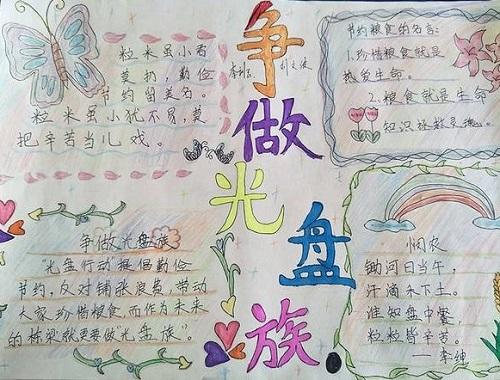 争
做
光
盘
族
粒米虽小君
莫扔,勤俭
节约留美名。
粒米虽小犹不易,莫
把辛苦当儿戏。
节约粮食的名言:
1.珍惜粮食就是
热爱生命。
2.粮食就是生命
知识拯救灵魂。
争做光盘族
"光盘行动"提倡勤俭
节约,反对铺张浪费,带动
大家珍惜粮食而作为未来
的栋梁就更要做"光盘族"。
悯农
锄河日当午,
汗滴禾下土。
谁知盘中餐,
粒粒皆辛苦。
——李绅